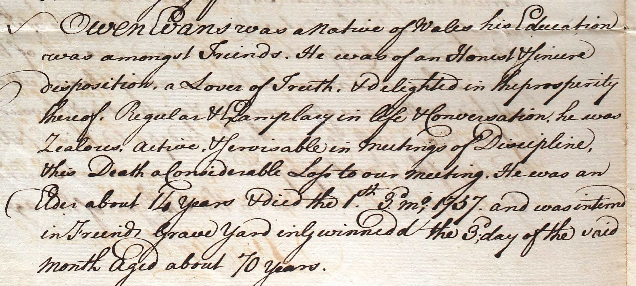 Owen Evans was a Native of Wales his Education
was amongst Friends. He was of an Honest & sincere
disposition, a Lover of Truth, & delighted in the prosperity
thereof, Regular & Examplary in life & Conversation, he was
Zealous, active, & servisable in meetings of Discipline,
& his Death a Considerable Loss to our meeting. He was an
Elder about 14 years & died the 1st. 3d mo, 1757. and was interred
in Friends Grave Yard in Gwinnedd the 3d. day of the said
month Aged about 70 years.